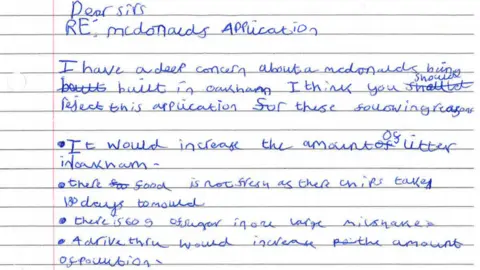 Dear sirs
RE: mcdonalds APPlication
I have a deep concern about a mcdonalds being
built built in oakham I think you should
reject this application for these following reasons
• It would increase the amount of litter
in oakham.
• there food is not fresh as there chips takes
days to mould
• there is 60 g of sugar in one large milkshake
• A drive thru would increase the amount
of pollution.